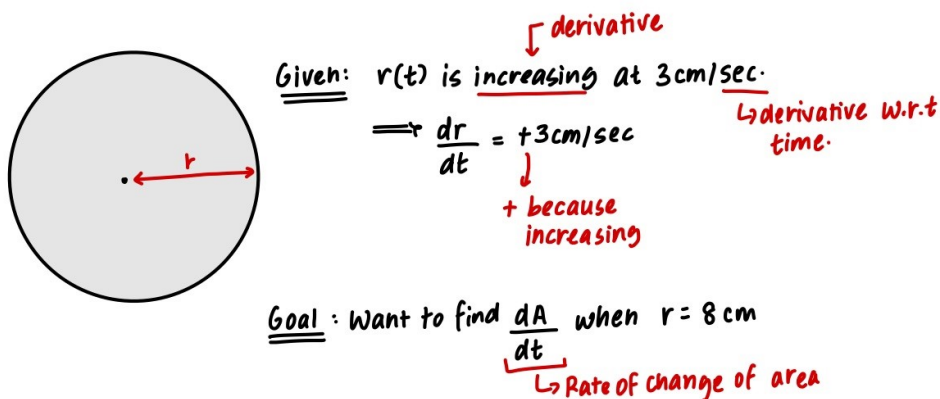 derivative
Given: r(t) is increasing at 3cm/sec.
↳derivative w.r.t
time.
⟹ dr/dt = +3cm/sec
+ because
increasing
r
Goal : Want to find dA/dt when r = 8 cm
↳ Rate of change of area